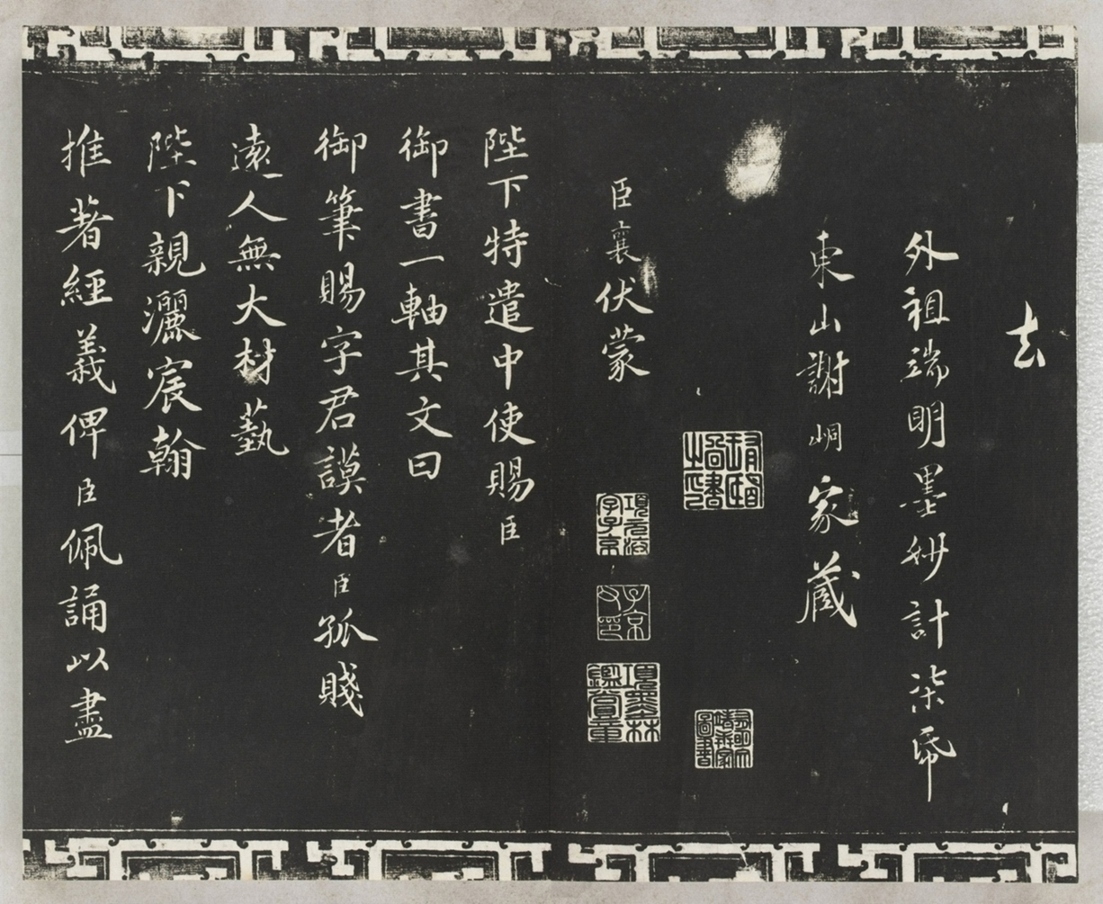 去
外祖端明墨妙計柒帋
東山謝峒家藏
臣襄伏蒙
陛下特遣中使賜臣
御書一軸其文曰
御筆賜字君謨者臣孤賤
遠人無大材藝
陛下親灑宸翰
推著經義俾臣佩誦以盡
項元汴
字子京
子京
項墨林
鑑賞章